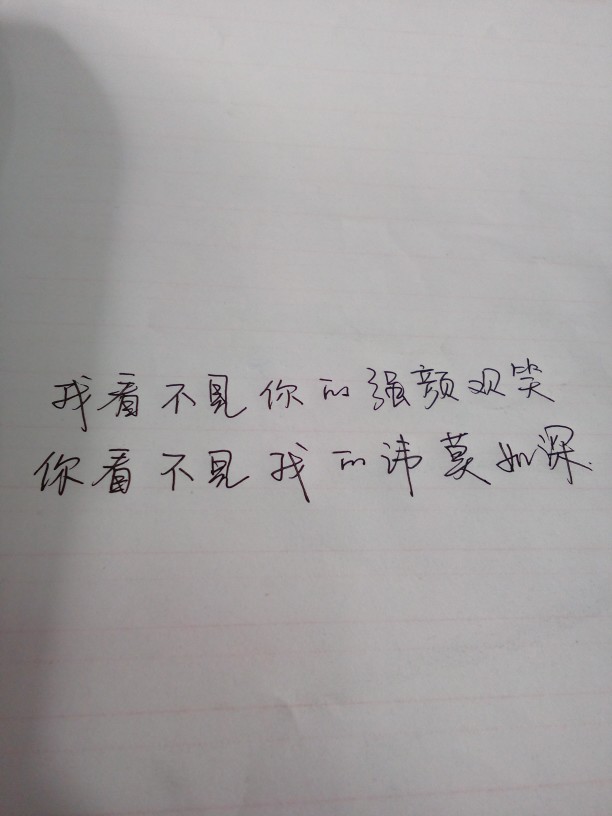 我看不见你的强颜欢笑
你看不见我的讳莫如深.